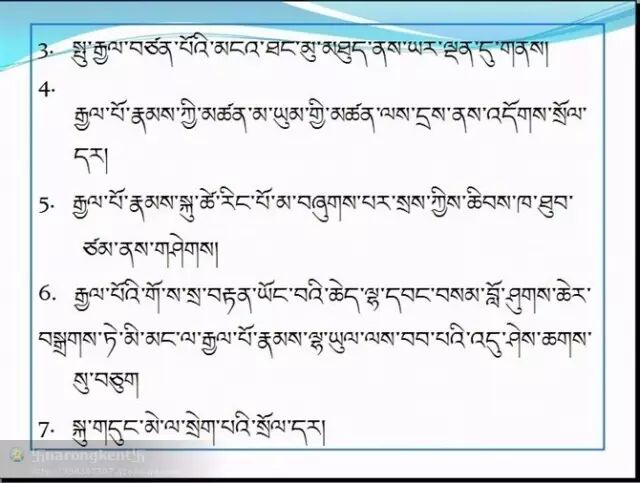 3. སྤུ་རྒྱལ་བཙན་པོའི་མངའ་ཐང་མུ་མཐུད་ནས་ཡར་ལྡན་དུ་གནས།
4.
རྒྱལ་པོ་རྣམས་ཀྱི་མཚན་མ་ཡུམ་གྱི་མཚན་ལས་དྲས་ནས་འདོགས་སྲོལ་
དར།
5. རྒྱལ་པོ་རྣམས་སྐུ་ཚེ་རིང་པོ་མ་བཞུགས་པར་སྲས་ཀྱིས་ཆིབས་ཁ་ཐུབ་
ཙམ་ནས་གཤེགས།
6. རྒྱལ་པོའི་གོ་ས་སྲ་བརྟན་ཡོང་བའི་ཆེད་ལྷ་དབང་བསམ་བློ་ཤུགས་ཆེར་
བསྒྲགས་ཏེ་མི་མང་ལ་རྒྱལ་པོ་རྣམས་ལྷ་ཡུལ་ལས་བབ་པའི་འདུ་ཤེས་ཆགས་
སུ་བཅུག
7. སྐུ་གདུང་མེ་ལ་སྲེག་པའི་སྲོལ་དར།